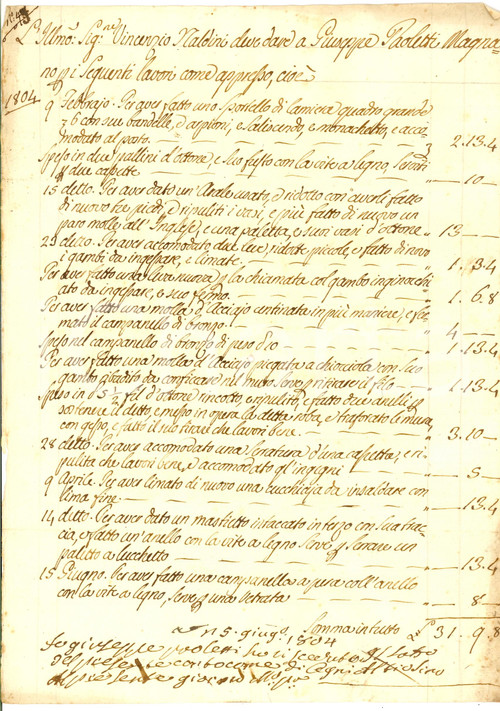 Illmo: Sig:ne Vincenzio Naldini deve dare a Giuseppe Paoletti Magna=
no p i Seguenti lavori come appresso, cioè
1804
9 Febbrajo. Per aver fatto uno sportello di lamiera quadro grande
3/6 con sue bandelle, d'arpioni, e saliscendo, e monachetto, e acco
modato al posto. 2.13.4
Speso in due pallini d'ottone, e suo fusto con la vite a legno, servití
p due cassette 10
15 detto. Per aver dato un' Arale usato, e ridotto con averli fatto
di nuovo tre piedi, e ripuliti i vasi, e più fatto di nuovo un
paro molle all' Inglese, e una paletta, e suoi vasi d'ottone 13
29 detto. Per aver accomodato due leve, ridotte, piccole, e fatto di novo
i gambi da ingessare, e limate. 1.3.4
Per aver fatto una leva nuova p la chiamata col gambo inginocchi
ato da ingessare, e suo fermo. 1.6.8
Per aver fatto una molla d'Acciajo centinata in più maniere, e fer
mato il campanello di bronzo. 4
Speso nel campanello di bronzo di peso 1.13.4
Per aver fatto una molla d'Acciajo piegata a chiocciola con suo
gambo quadro da conficcare nel muro serve p tirare il filo 1.13.4
Speso in 5 1/2 fil d'ottone ricotto, e ripulito, e fatto due anelli p
sostenere il ditto, e messo in opera la detta roba, e traforato li mura,
con gesso, e fatto il suo tirare che lavori bene. 3.10
28 detto. Per aver accomodato una serratura d'una cassetta, e ri
pulita che lavori bene, e accomodato gl'ingegni 5
9 Aprile. Per aver limato di nuovo una cucchiaja da insaldare con
lima fine. 13.4
14 ditto. Per aver dato un mastietto intaccato in terzo con sua trac
cia, e fatto un'anello con la vite a legno serve p serrare un
paletto a lucchetto 13.4
15 Giugno. Per aver fatto una campanella a pera coll'anello
con la vite a legno, serve p una vetrata 8
Somma in tutto 31.9.8
a 15. giug. 1804
Io giuseppe paoletti ho ricevuto